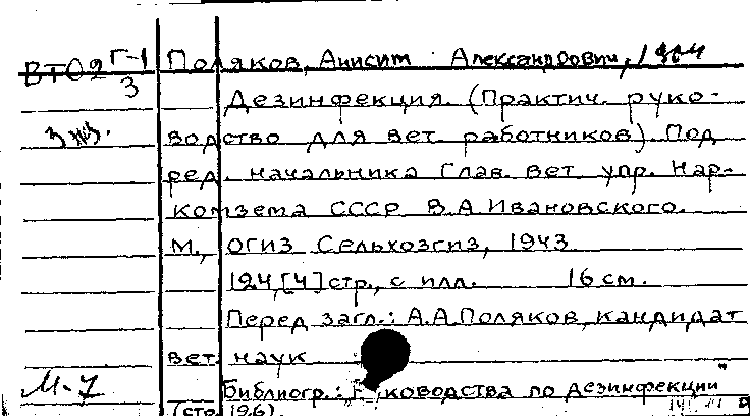 ВТО2 Г-1/3 Поляков, Анисим Александрович, 1904
Дезинфекция. (Практич. руко-
3 экз. водство для вет. работников). Под
ред. начальника Глав. вет. упр. Нар-
комзема СССР В.А.Ивановского.
М., ОГИЗ Сельхозгиз, 1943
124,[4]стр., с илл. 16 см.
Перед загл.: А.А.Поляков, кандидат
вет. наук
М-7 Библиогр.: ководства по дезинфекции"
(стр. 126).